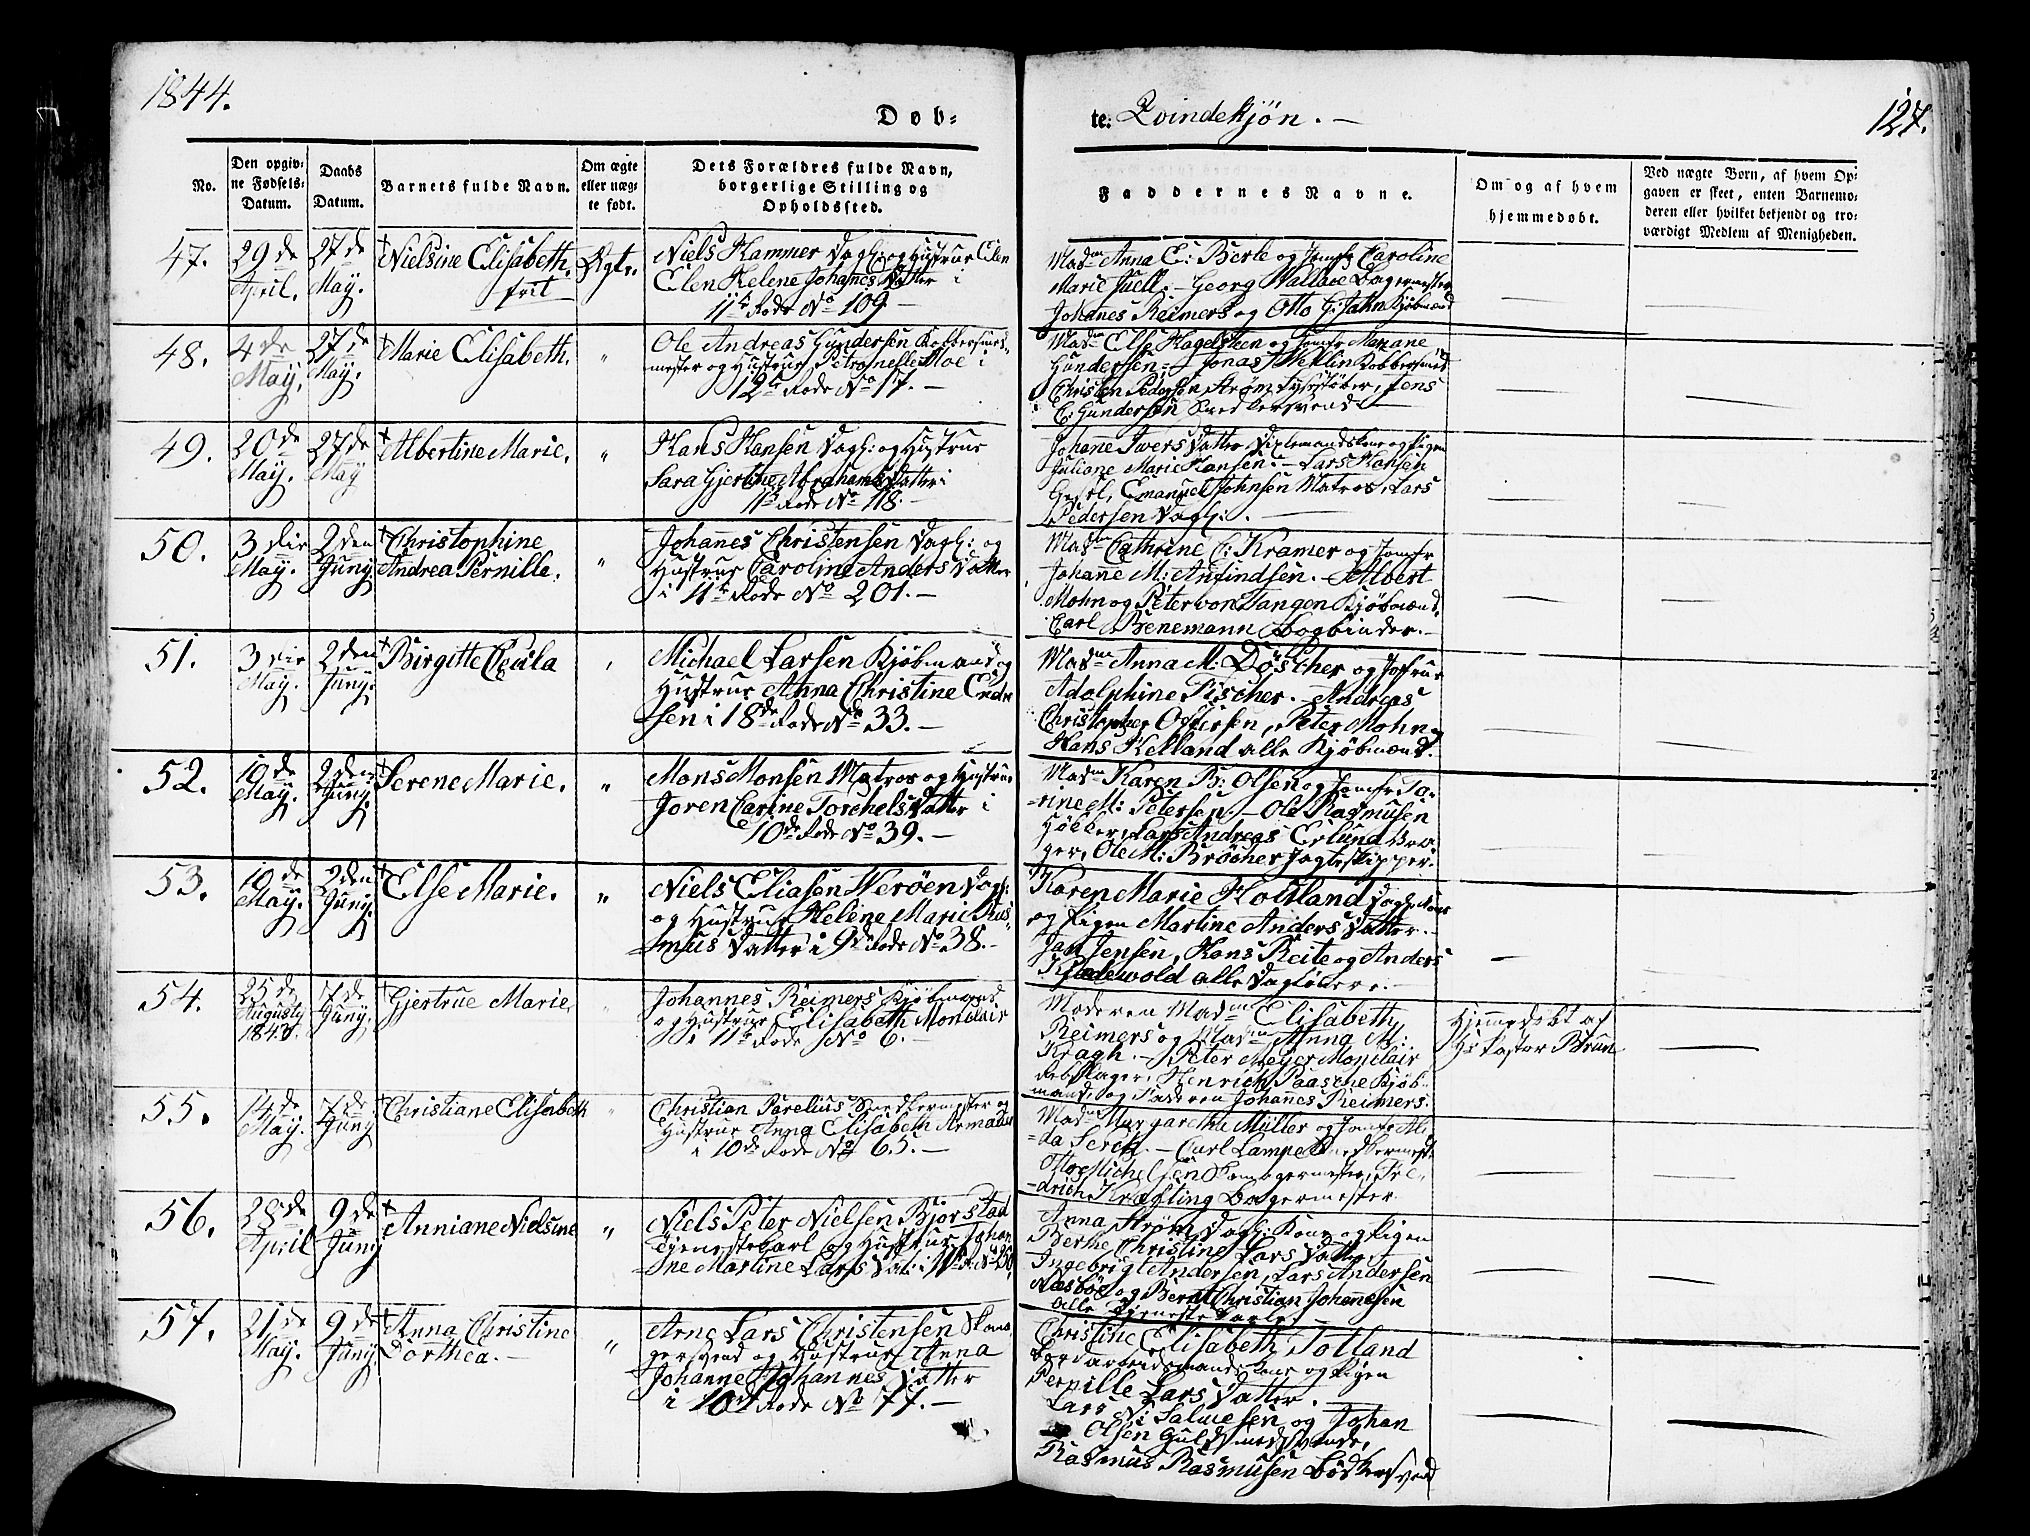 1844.
Døb-
te: Qvindekjøn. —
127.
No.
Den opgiv-
ne Fødsels-
Datum.
Daabs
Datum.
Barnets fulde Navn.
Om ægte
eller uæg-
te født.
Dets Forældres fulde Navn,
borgerlige Stilling og
Opholdssted.
Faddernes Navne.
Om og af hvem
hjemmedøbt.
Ved uægte Børn, af hvem Op-
gaven er skeet, enten Barnemo-
deren eller hvilket bekjendt og tro-
værdigt Medlem af Menigheden.
47.
29de
April.
27de
May.
Nielsine Elisabeth.
frit
Ægte.
Niels Hammer Dagl: og Hustrue Elen
Elen Helene Johanes Datter i
11te Rode No 109 —
Madm Anna C: Berle og Jomfr Caroline
Marie Juell. — Georg Wallace Bagermester
Johanes Reimers og Otto G: Jahn Kjøbmænd
48.
4de
May.
27de
May.
Marie Elisabeth.
"
Ole Andreas Gundersen Kobbersmed-
mester og Hustrue Petronelle Moe i
12te Rode No 17. —
Madm Else Hagelsteen og Jomfr Mariane
Gundersen. — Jonas Wehlin Kobbersmed
Christen Pedersen Strøm Lysestøber, Jens
C: Gundersen Snedkersvend —
49.
20de
May.
27de
May
Albertine Marie.
"
Hans Hansen Dagl: og Hustrue
Sara Gjertine Abrahams Datter i
11te Rode No 118. —
Johane Iwers Datter Kone og Pigen
Juliane Marie Hansen. — Lars Hansen
Emanuel Johnsen Matros, Lars
Pedersen Dagl: . —
50.
3die
May.
2den
Juny
Christophine
Andrea Pernille.
"
Johanes Christensen Dagl: og
Hustrue Caroline Anders Datter
i 11te Rode No 201. —
Madm Cathrine C: Kramer og Jomfr
Johane M: Anfindsen. — Albert
Mohn og Peter von Tangen Kjøbmænd,
Carl Benemann Bogbinder. —
51.
3die
May.
2den
Juny.
Birgitte Cecila
"
Michael Larsen Kjøbmand og
Hustrue Anna Christine Endre
sen i 18de Rode No 33. —
Madm Anna M: Döscher og Jomfrue
Adolphine Fischer. — Andreas
Christopher Offersen, Peter Mohn og
Hans Kelland alle Kjøbmænd.
52.
19de
May.
2den
Juny.
Serene Marie.
"
Mons Monsen Matros og Hustrue
Joren Carine Torchels Datter i
10de Rode No 39. —
Madm Karen B: Olsen og Jomfr Ta-
rine M: Petersen. — Ole Rasmusen
Høkker, Lars Andreas Erlund Bra-
ger, Ole M: Brøcher Jagteskipper.
53.
19de
May.
2den
Juny.
Else Marie.
"
Niels Eliasen Werøen Dagl:
og Hustrue Helene Marie Ras-
mus Datter i 9de Rode No 38. —
Karen Marie Holtland Dagl: Kone
og Pigen Martine Anders Datter. —
Jan Jensen, Hans Reite og Anders
alle Dagløbere. —
54.
25de
Augusty
1843.
7de
Juny.
Gjertrue Marie
"
Johannes Reimers Kjøbmand
og Hustrue Elisabeth Monclair
i 11te Rode No 6. —
Moderen Madm Elisabeth
Reimers og Madm Anna M:
Kragh. — Peter Meyer Monclair
Rebslager, Henrich Paasche Kjøb-
mand, og Faderen Johanes Reimers.
Hjemmedøbt af
Hr Pastor Brun
55.
14de
May.
7de
Juny
Christiane Elisabeth
"
Christian Parelius Snedkermester og
Hustrue Anna Elisabeth
i 10de Rode No 65. —
Madm Margarethe Müller og Jomfr Al-
da Serck. — Carl Lampe Snedkermest:
Michelsen Skomagermester, Fre-
drich Kræfting Bagermester.
56.
28de
April
9de
Juny
Anniane Nielsine
"
Niels Peter Nielsen Bjorstad
Tjenestekarl og Hustrue Johan-
ne Martine Lars Dat: i 11te R: No 250,
Anna Strøm Dagl: Kone og Pigen
Berthe Christine Lars Datter.
Ingebrigt Andersen, Lars Andersen
Næsbøe og Bernt Christian Johannesen
alle Tjenestekarle.
57.
21de
May.
9de
Juny.
Anna Christine
Dorthea. —
"
Arne Lars Christensen Skoma-
gersvend og Hustrue Anna
Johanne Johannes Datter
i 10de Rode No 77. —
Christine Elisabeth Totland
Bordarbeidsmands Kone og Pigen
Pernille Lars Datter. —
Lars N: Salvesen og Johan
Olsen Guldsmedsvende,
Rasmus Rasmusen Bødkersvend